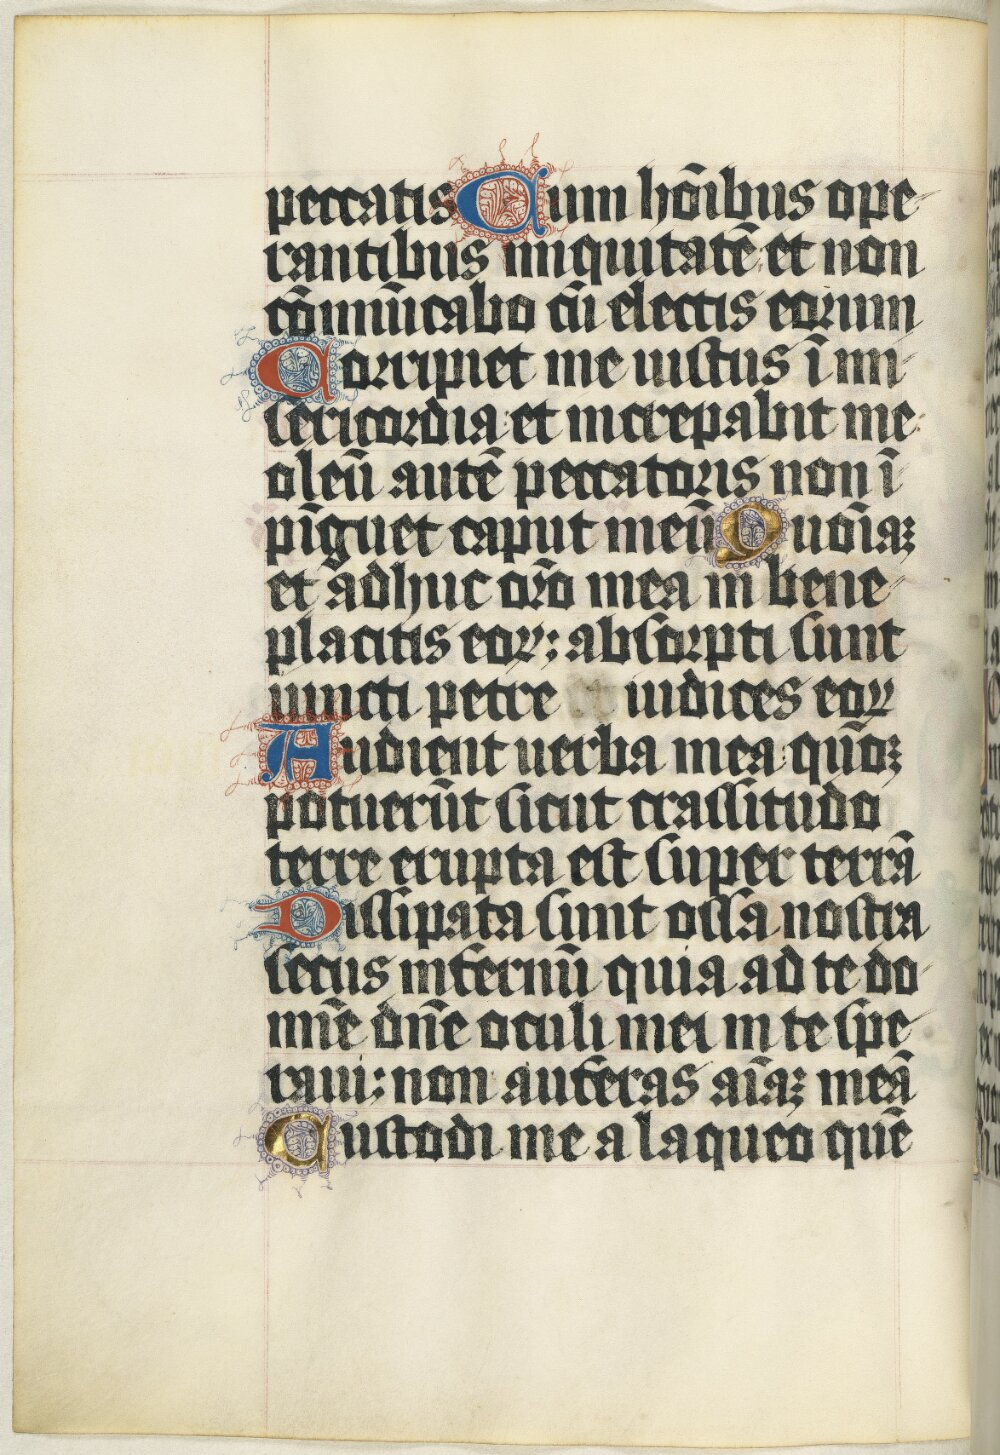 peccatis Cum hōībus ope
rantibus iniquitatē et non
cōmūicabo cū electis eorum
Corripiet me iustus ī mi
sericordia et increpabit me
oleū autē peccatoris non ī
pīguet caput meū Quōiaꝫ
et adhuc orō mea in bene
placitis eoꝝ: absorpti sunt
iuncti petre iudices eoꝝ
Audient uerba mea quōꝫ
potuerūt sicut crassitudo
terre erupta est super terrā
Dissipata sunt ossa nostra
secus infernū quia ad te do
mīe dn̄e oculi mei in te spe
raui: non auferas aīaꝫ meā
Custodi me a laqueo quē